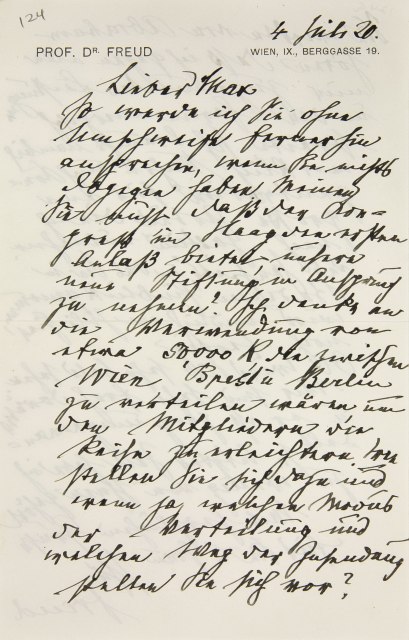 124
4 Juli 20.
PROF. DR. FREUD
WIEN, IX., BERGGASSE 19.
Lieber Max
So werde ich Sie ohne
Umschweife fernerhin
ansprechen, wenn Sie nichts
dagegen haben. Meinen
Sie nicht daß der Kon-
greß im Haag den ersten
Anlaß bietet unsere
neue Stiftung in Anspruch
zu nehmen? Ich denke an
die Verwendung von
etwa 50000 K die zwischen
Wien, Bpest u Berlin
zu verteilen wären um
den Mitgliedern die
Reise zu erleichtern. Wie
stellen Sie sich dazu und
wenn ja, welchen Modus
der Verteilung und
welchen Weg der Zusendung
stellen Sie sich vor?